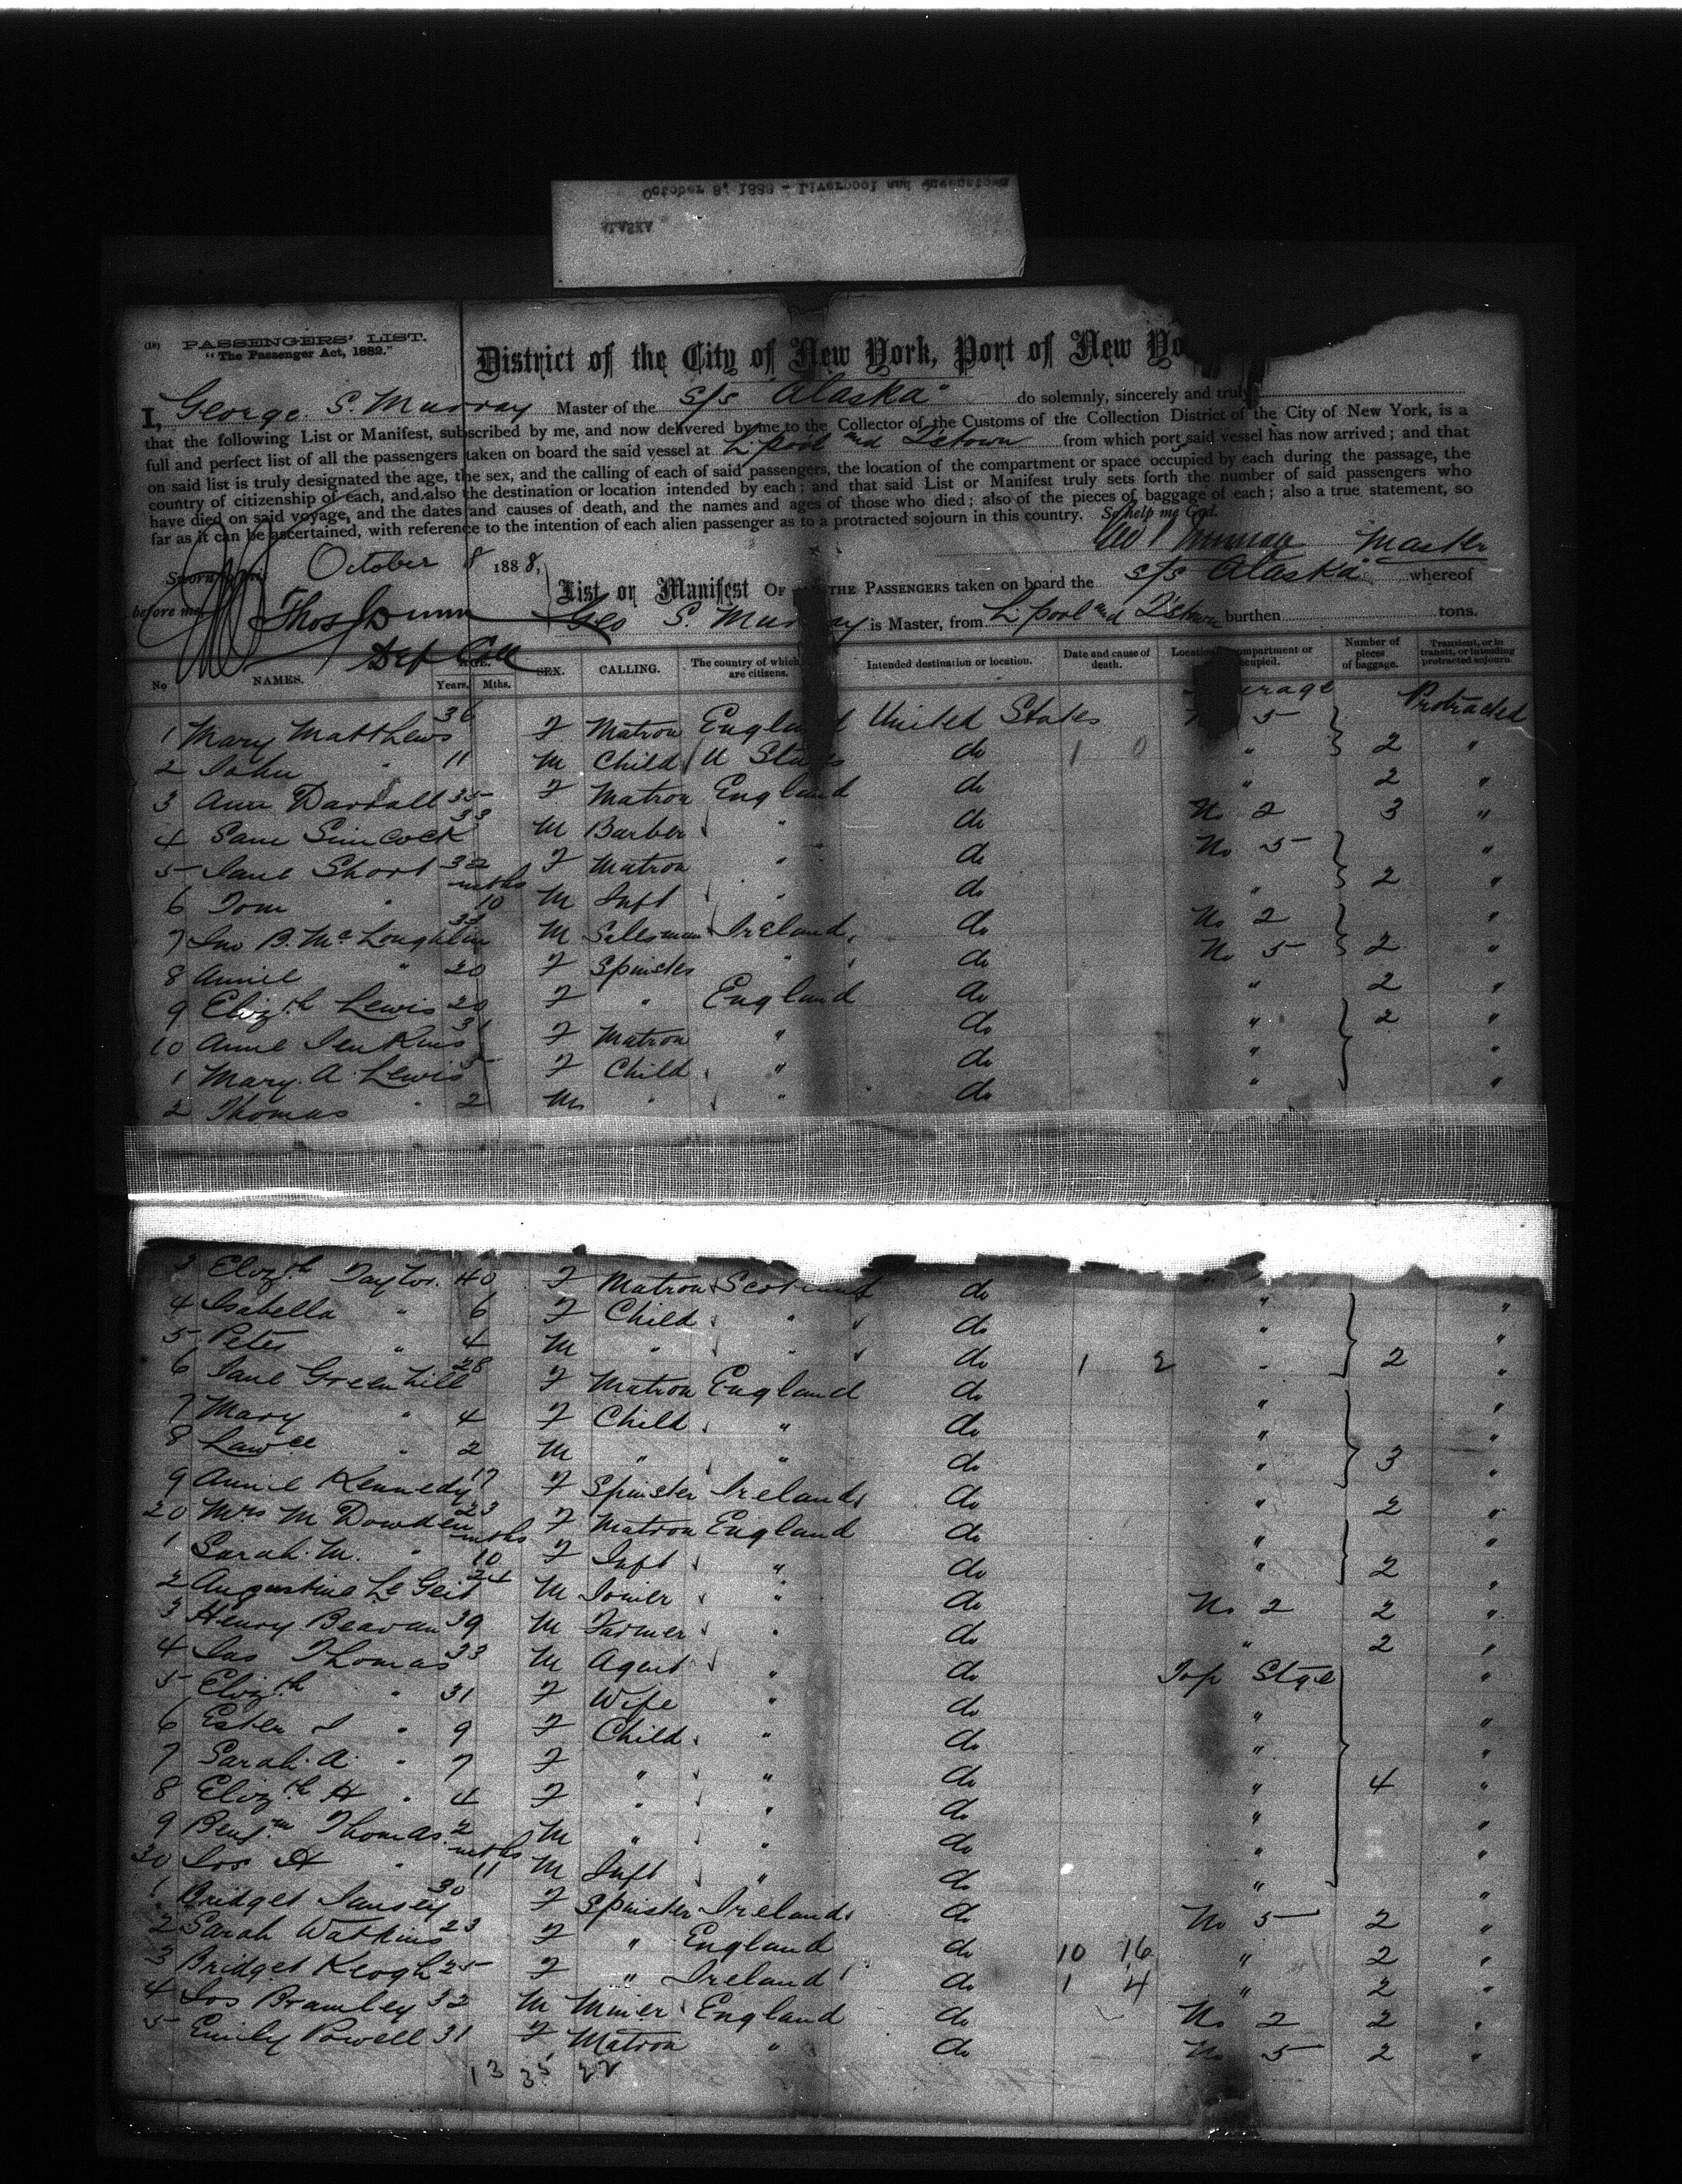 October 8, 1888 - Liverpool and Queenstown
ALASKA
(18) PASSENGERS' LIST.
"The Passenger Act, 1882."
District of the City of New York, Port of New Yo
I, George S. Murray Master of the s/s "Alaska" do solemnly, sincerely and truly
that the following List or Manifest, subscribed by me, and now delivered by me to the Collector of the Customs of the Collection District of the City of New York, is a
full and perfect list of all the passengers taken on board the said vessel at L'pool and Q'etown from which port said vessel has now arrived; and that
on said list is truly designated the age, the sex, and the calling of each of said passengers, the location of the compartment or space occupied by each during the passage, the
country of citizenship of each, and also the destination or location intended by each; and that said List or Manifest truly sets forth the number of said passengers who
have died on said voyage, and the dates and causes of death, and the names and ages of those who died; also of the pieces of baggage of each; also a true statement, so
far as it can be ascertained, with reference to the intention of each alien passenger as to a protracted sojourn in this country. So help me God.
Geo S Murray Master
Sworn to this October 8 1888,
before me Thos Dunn
Dep Coll
List or Manifest OF THE PASSENGERS taken on board the s/s Alaska whereof
Geo S. Murray is Master, from L'pool and Q'etown burthen tons.
No NAMES. AGE. Years. Mths. SEX. CALLING. The country of which are citizens. Intended destination or location. Date and cause of death. Location compartment or occupied. Number of pieces of baggage. Transient, or in transit, or intending protracted sojourn.
1 Mary Matthews 36 F Matron England United States 5 Protracted
2 John " 11 M Child U States do 1 0 " 2 "
3 Ann 35 F Matron England do " 2 "
4 Sam Simcock 33 M Barber " do No 2 3 "
5 Jane Short 32 F Matron " do No 5 "
6 Tom " mths 10 M Inft " do " 2 "
7 Jno B. McLoughlin 33 M Salesman Ireland do No 2 "
8 Annie " 20 F Spinster " do No 5 2 "
9 Elizth Lewis 20 F " England do " 2 "
10 Anne Jenkins 31 F Matron " do " 2 "
1 Mary A. Lewis 5 F Child " do " "
2 Thomas " 2 M " " do " "
3 Elizth Taylor 40 F Matron Scotland do " "
4 Isabella " 6 F Child " do " "
5 Peter " 4 M " " do 1 2 " 2 "
6 Jane Greenhill 28 F Matron England do " "
7 Mary " 4 F Child " do " "
8 Lawce " 2 M " " do " 3 "
9 Annie Kennedy 17 F Spinster Ireland do " 2 "
20 Mrs M Dowden 23 F Matron England do " "
1 Sarah M. " mths 10 F Inft " do " 2 "
2 Augustine Le Geit 24 M Joiner " do No 2 2 "
3 Henry Beavan 39 M Farmer " do " 2 "
4 Jas Thomas 33 M Agent " do Top Stge "
5 Elizth " 31 F Wife " do " "
6 Esther J " 9 F Child " do " "
7 Sarah A. " 7 F " " do " 4 "
8 Elizth H " 4 F " " do " "
9 Benjm Thomas 2 M " " do " "
30 Jos H " mths 11 M Inft " do " "
1 Bridget 30 F Spinster Ireland do No 5 2 "
2 Sarah Watkins 23 F " England do 10 16 " 2 "
3 Bridget Keogh 25 F " Ireland do 1 4 " 2 "
4 Jos Bramley 32 M Miner England do No 2 2 "
5 Emily Powell 31 F Matron " do No 5 2 "
13 35 22